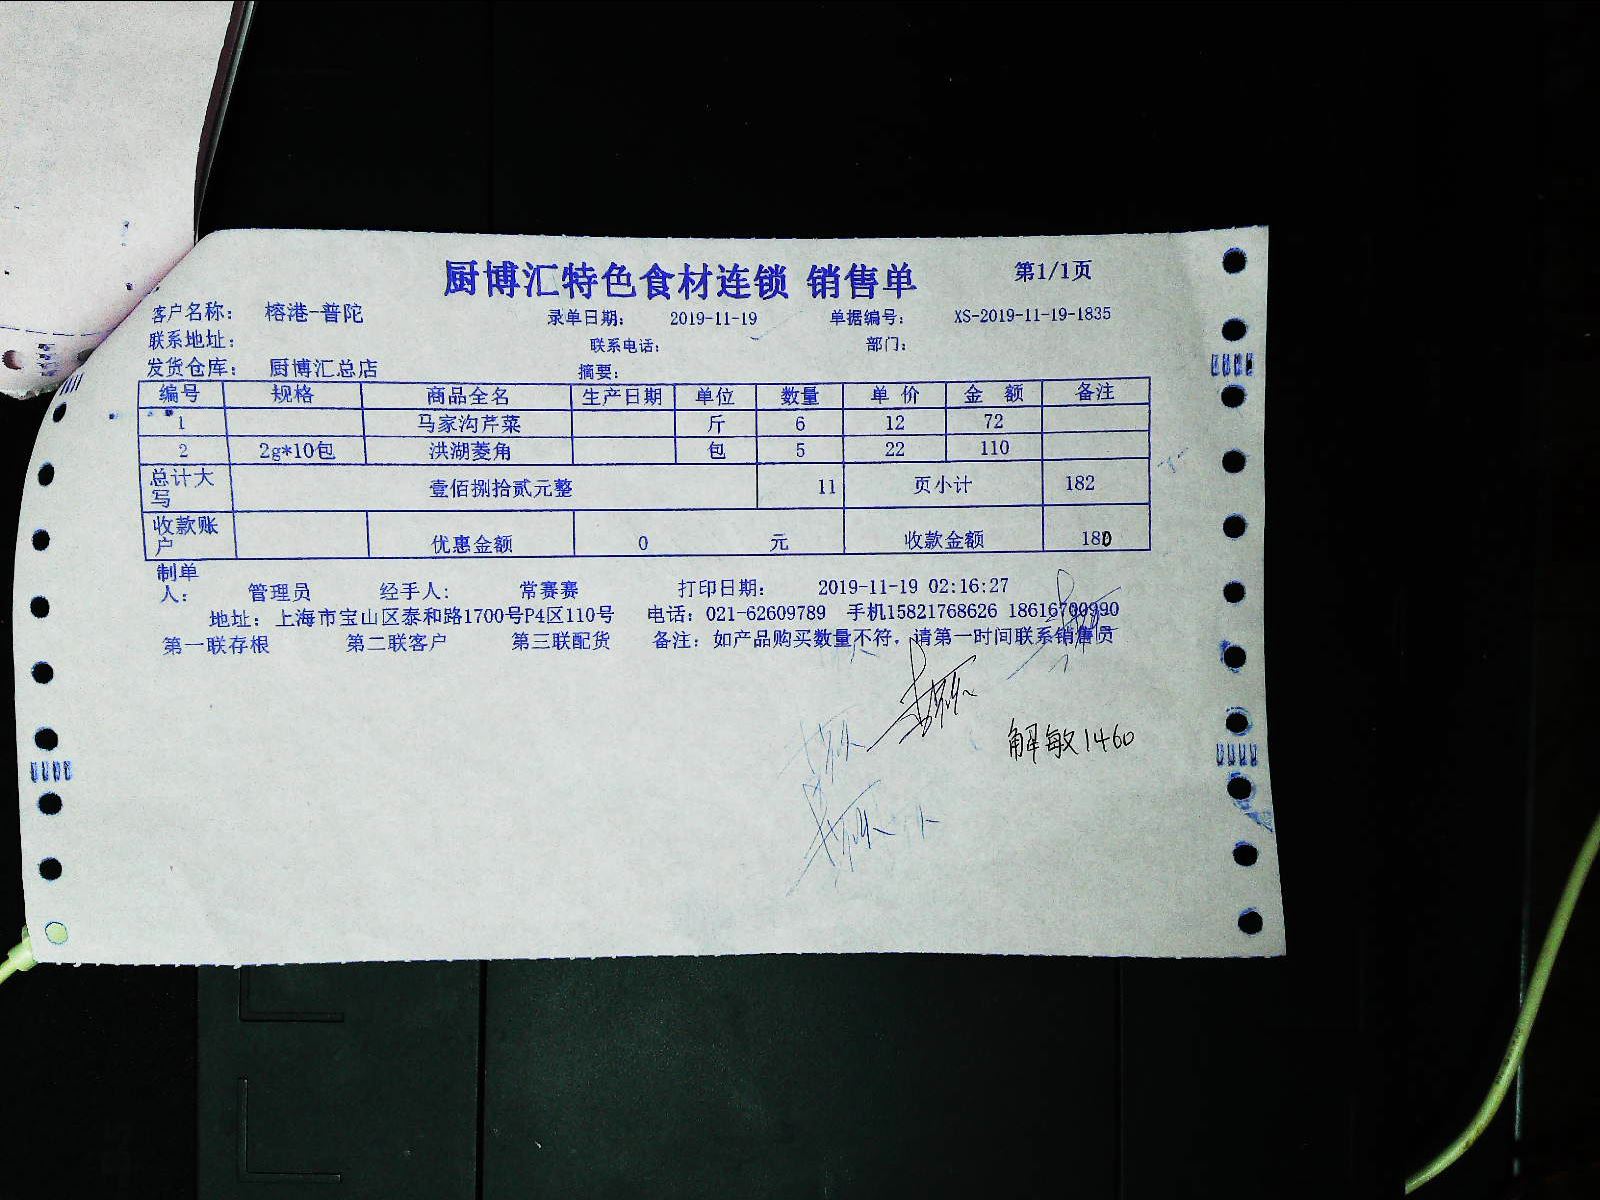 厨博汇特色食材连锁 销售单 第1/1页
客户名称： 榕港-普陀 录单日期： 2019-11-19 单据编号： XS-2019-11-19-1835
联系地址： 联系电话： 部门：
发货仓库： 厨博汇总店 摘要：
编号 规格 商品全名 生产日期 单位 数量 单 价 金 额 备注
1 马家沟芹菜 斤 6 12 72
2 2g*10包 洪湖菱角 包 5 22 110
总计大写 壹佰捌拾贰元整 11 页小计 182
收款账户 优惠金额 0 元 收款金额 180
制单人： 管理员 经手人： 常赛赛 打印日期： 2019-11-19 02:16:27
地址：上海市宝山区泰和路1700号P4区110号 电话：021-62609789 手机15821768626 18616700990
第一联存根 第二联客户 第三联配货 备注：如产品购买数量不符，请第一时间联系销售员
解敏1460